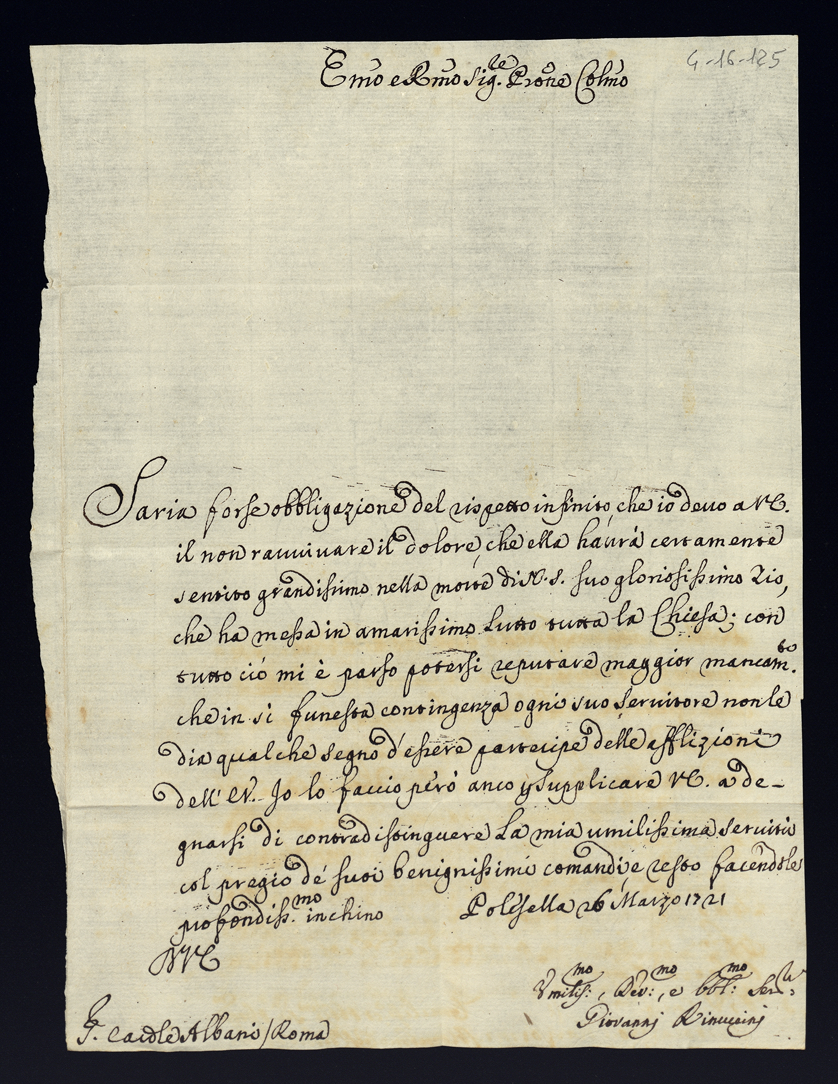 Emo e Rmo Sig.re Prone Colmo
4-16-125
Saria forse obbligazione del rispetto infinito, che io devo a VE.
il non ravvivare il dolore, che ella havrà certamente
sentito grandissimo nella morte di N. S. suo gloriosissimo Zio,
che ha messa in amarissimo lutto tutta la Chiesa; con
tutto ciò mi è parso potersi reputare maggior mancam.to
che in sì funesta contingenza ogni suo servitore non le
dia qualche segno d'essere partecipe delle afflizioni
dell' EV. Io lo faccio però anco p supplicare VE. a de-
gnarsi di contradistinguere la mia umilissima servitù
col pregio de' suoi benignissimi comandi, e resto facendole
profondiss.mo inchino Polesella 26 Marzo 1721
DVE
Umilis:mo, Dev:mo, e obbl:mo Ser:re
Giovannj Rinuccinj
S. Cardle Albani / Roma